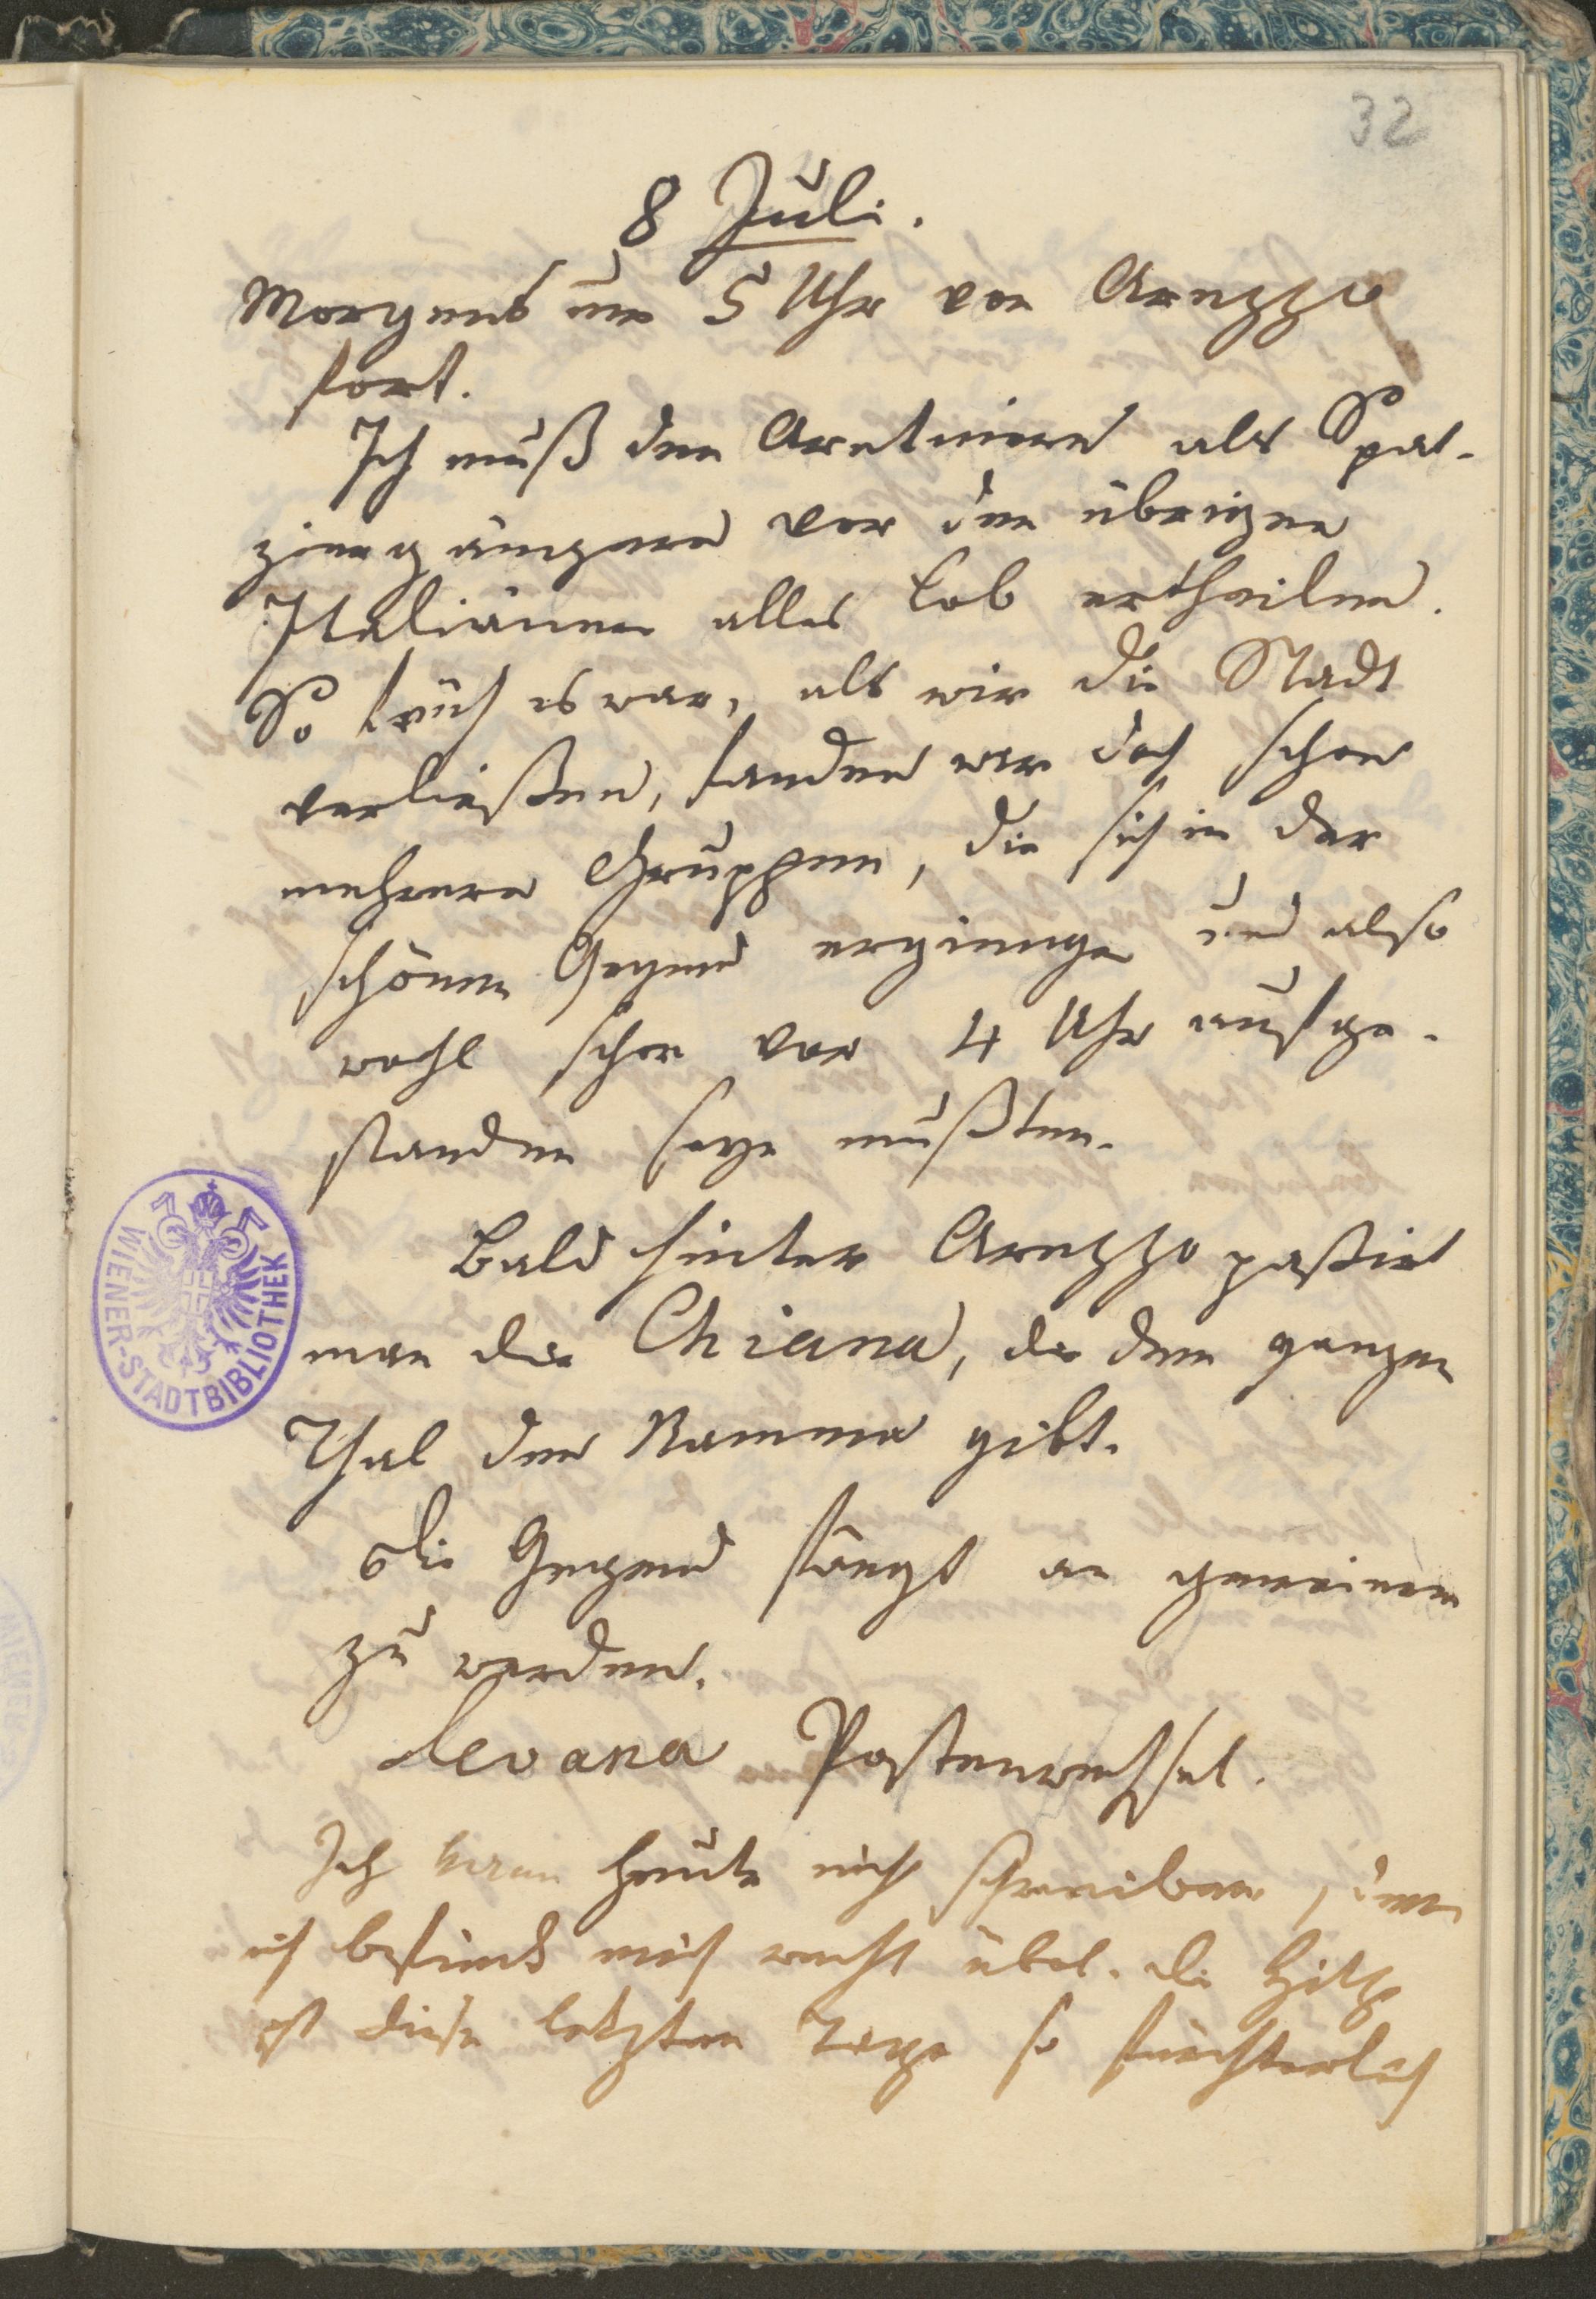 32
8 Juli.
Morgens um 5 Uhr von Arezzo
fort.
Ich muß den Aretinern als Spat-
ziergängern vor den übrigen
Italiänern alles Lob ertheilen.
So früh es war, als wir die Stadt
verließen, fanden wir doch schon
mehrere Gruppen, die sich in der
schönen Gegend ergiengen und also
wohl schon vor 4 Uhr aufge-
standen seyn mußten.
Bald hinter Arezzo passirt
man die Chiana, die dem ganzen
Thal den Namen gibt.
Die Gegend fängt an gemeiner
zu werden.
Levana Postenwechsel.
Ich kann heute nicht schreiben, denn
ich befinde mich recht übel. Die Hitze
ist diese letzten Tage so fürchterlich
WIENER-STADTBIBLIOTHEK